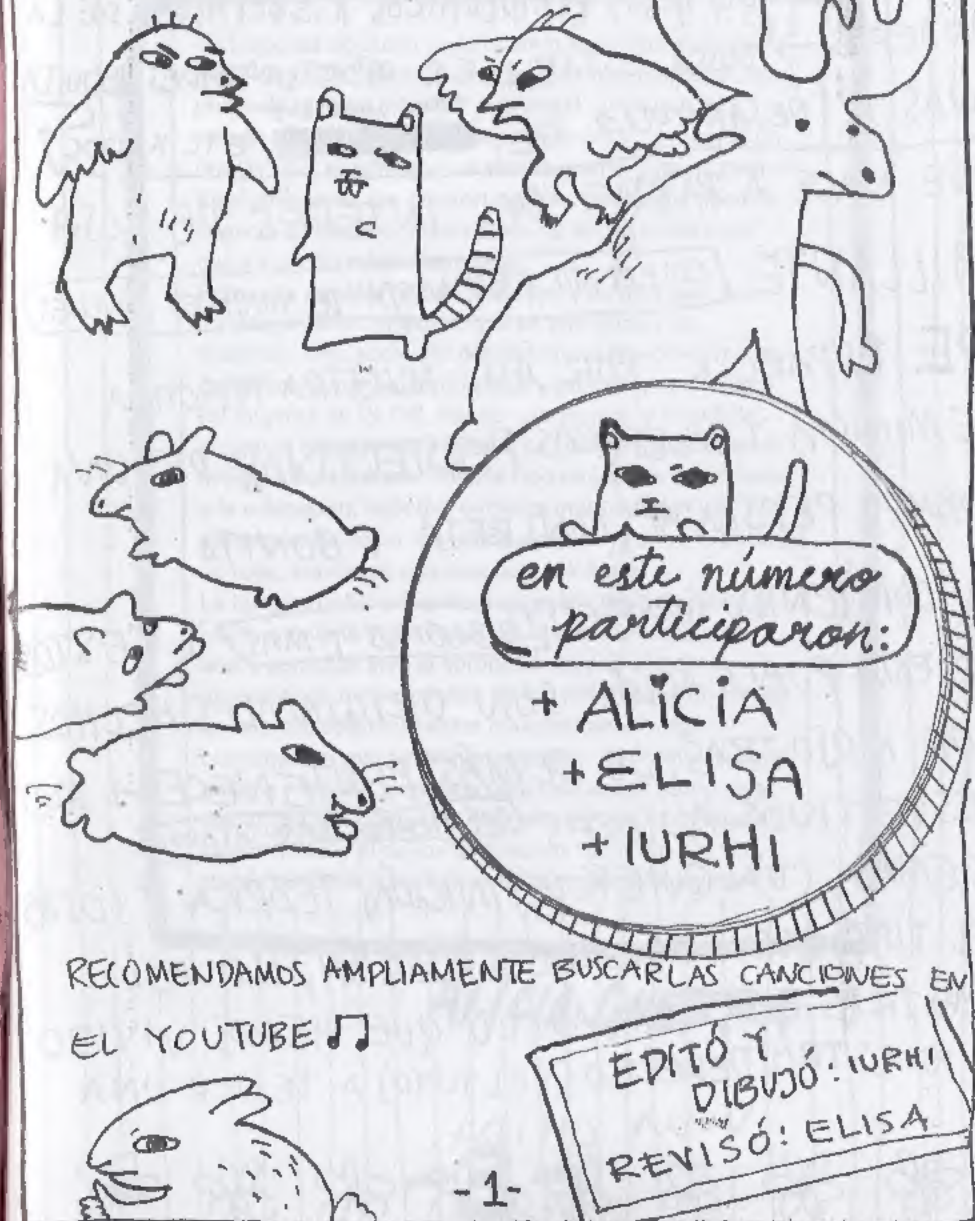 en este número
participaron:
+ ALICIA
+ ELISA
+ IURHI
RECOMENDAMOS AMPLIAMENTE BUSCAR LAS CANCIONES EN
EL YOUTUBE ♫
EDITÓ Y
DIBUJÓ: IURHI
REVISÓ: ELISA
-1-